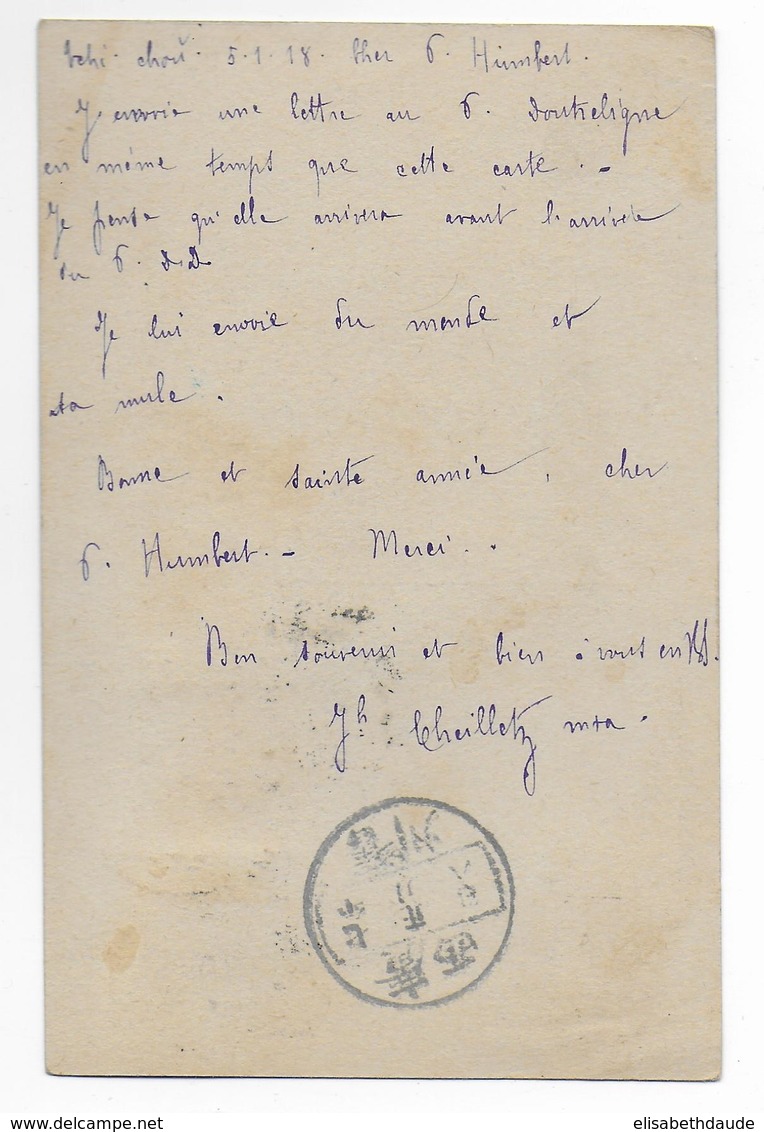 Tchi-choŭ. 5.1.18. Cher P. Humbert.
J'envoie une lettre au P. Doutreligne
en même temps que cette carte. -
Je pense qu'elle arrivera avant l'arrivée
du P. D.D.
Je lui envoie du monde et
sa mule.
Bonne et sainte année, cher
P. Humbert. - Merci.
Bon souvenir et bien à vous en NS.
Jh Cheilletz m+a.
elisabethdaude